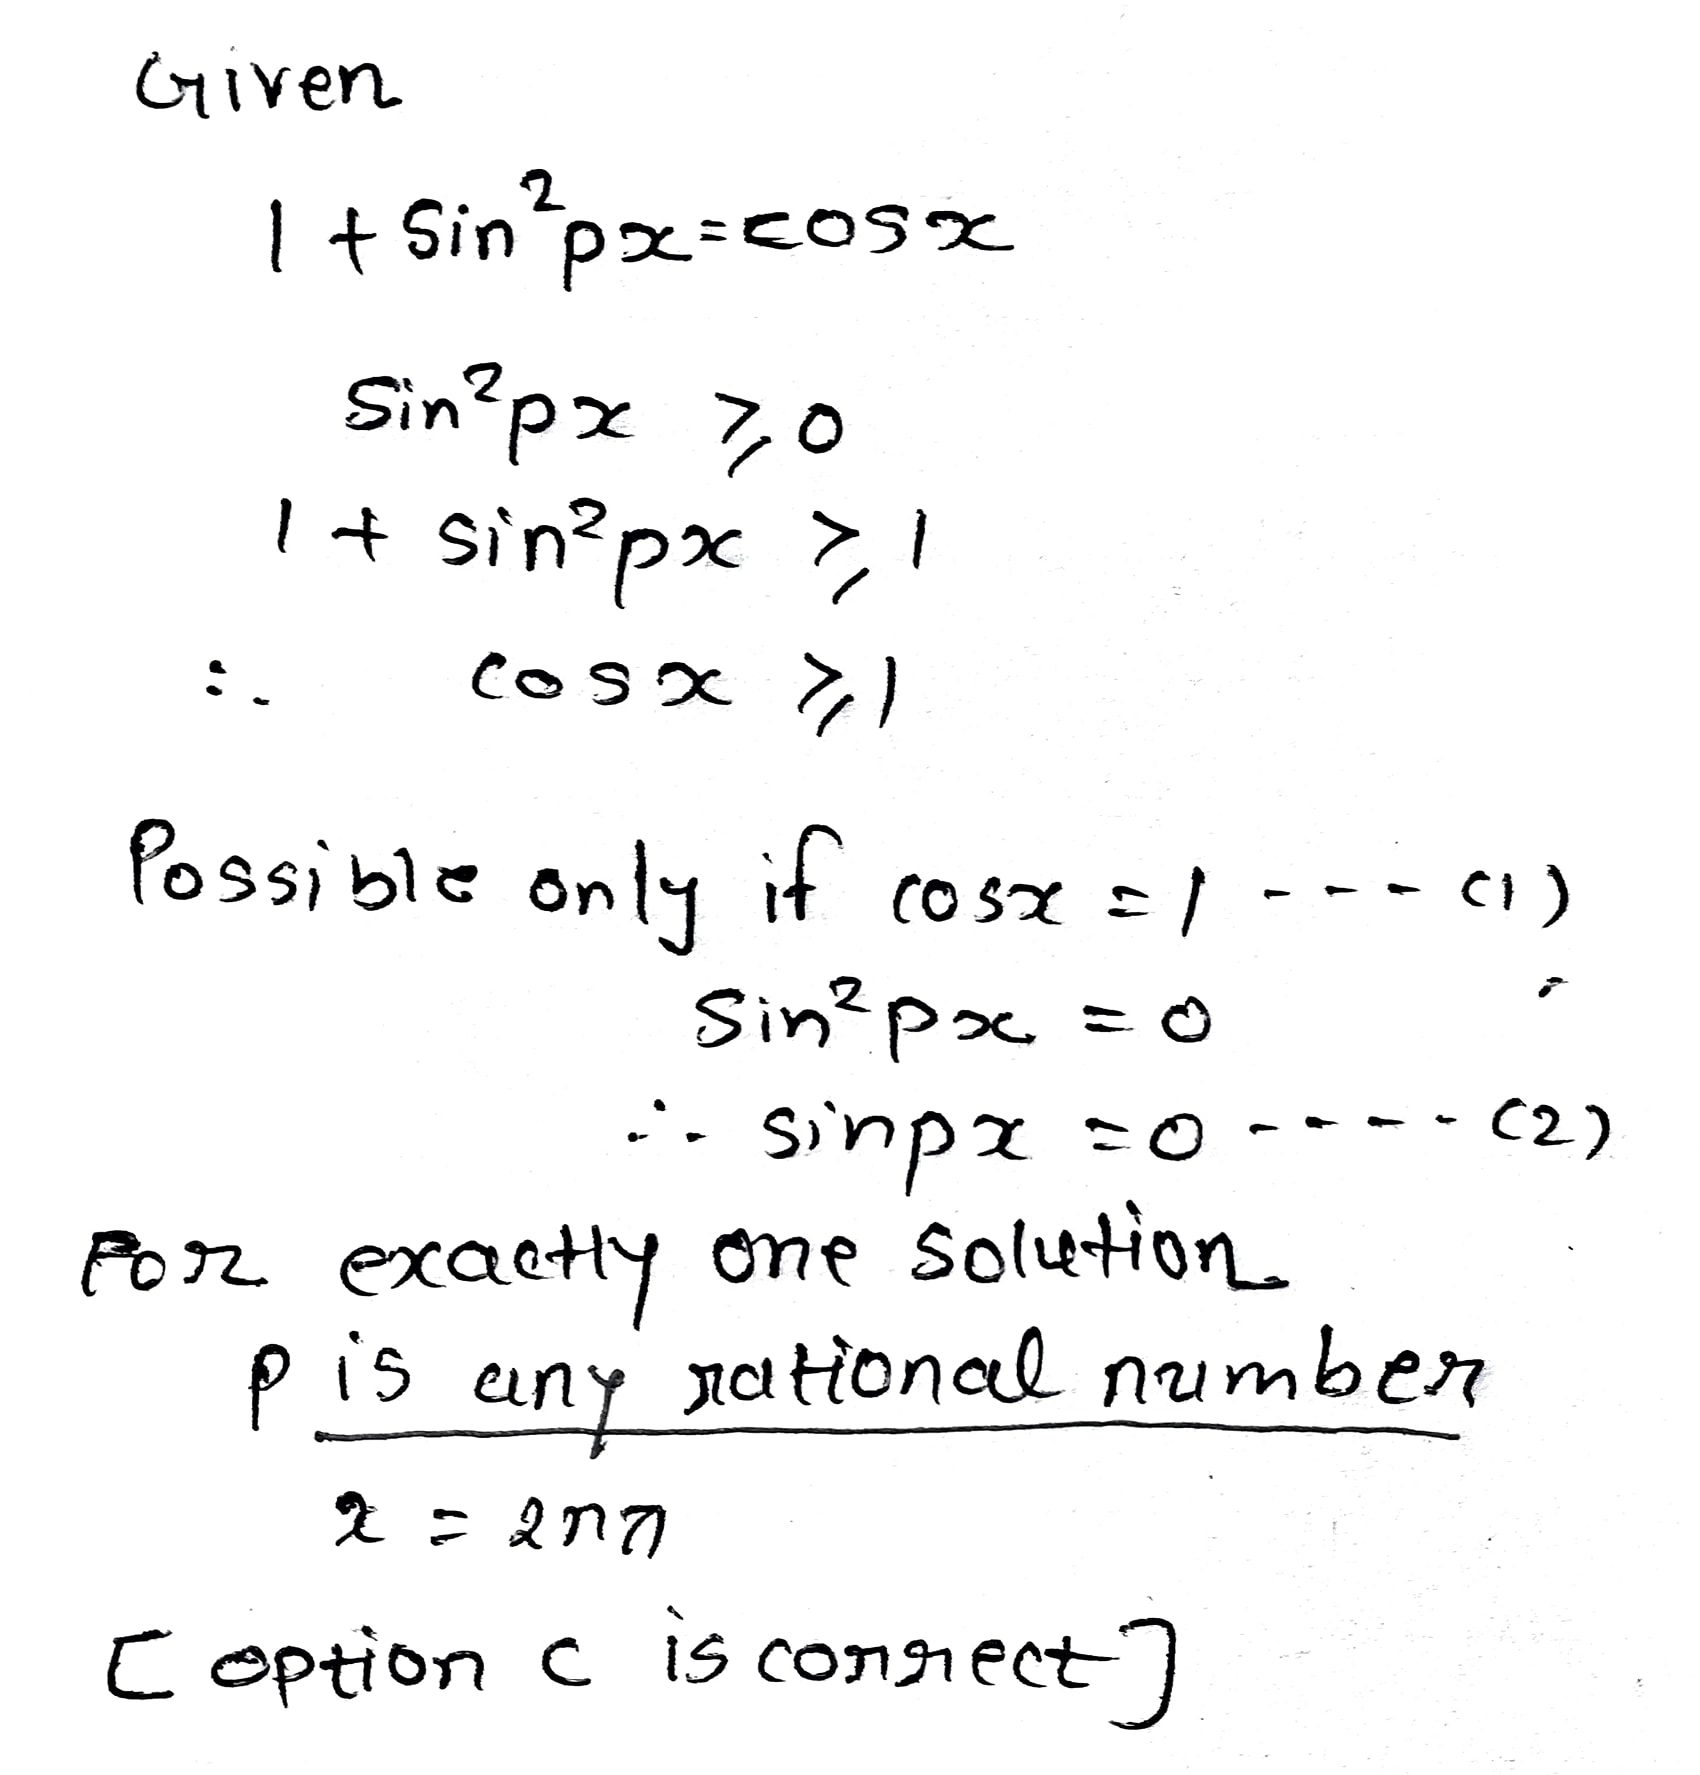 Given
1 + Sin²px = cosx
Sin²px ⩾ 0
1 + sin²px ⩾ 1
∴ cosx ⩾ 1
Possible only if cosx = 1 - - - - (1)
Sin²px = 0
∴ sinpx = 0 - - - - - (2)
For exactly one solution
p is any rational number
x = 2nπ
[option c is correct]